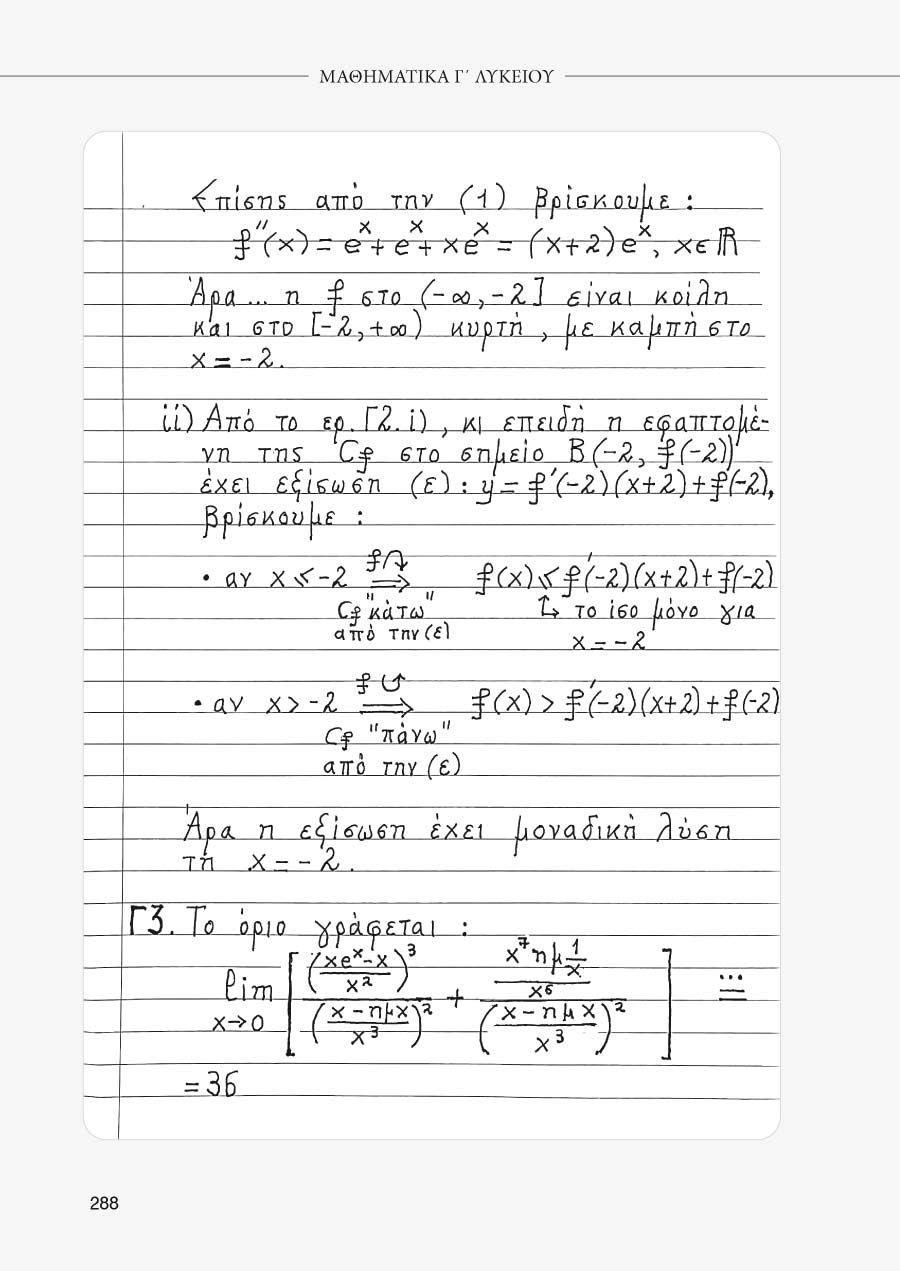 ΜΑΘΗΜΑΤΙΚΑ Γ΄ ΛΥΚΕΙΟΥ
Επίσης από την (1) βρίσκουμε :
f''(x) = e^x + e^x + xe^x = (x+2)e^x, x∈ℝ
Άρα ... η f στο (-∞, -2] είναι κοίλη
και στο [-2, +∞) κυρτή, με καμπή στο
x = -2.
ii) Από το ερ. Γ2. i), κι επειδή η εφαπτομέ-
νη της Cf στο σημείο B(-2, f(-2))
έχει εξίσωση (ε) : y = f'(-2)(x+2)+f(-2),
βρίσκουμε :
• αν x ≤ -2 f↷ ⟹ f(x) ≤ f'(-2)(x+2)+f(-2)
Cf "κάτω" ↳ το ίσο μόνο για
από την (ε) x = -2
• αν x > -2 f⤻ ⟹ f(x) > f'(-2)(x+2)+f(-2)
Cf "πάνω"
από την (ε)
Άρα η εξίσωση έχει μοναδική λύση
τη x = -2.
Γ3. Το όριο γράφεται :
lim x→0 [ ((xe^x - x)/x^2)^3 / ((x - ημx)/x^3)^2 + (x^7 ημ 1/x)/x^6 / ((x - ημx)/x^3)^2 ] =...
= 36
288